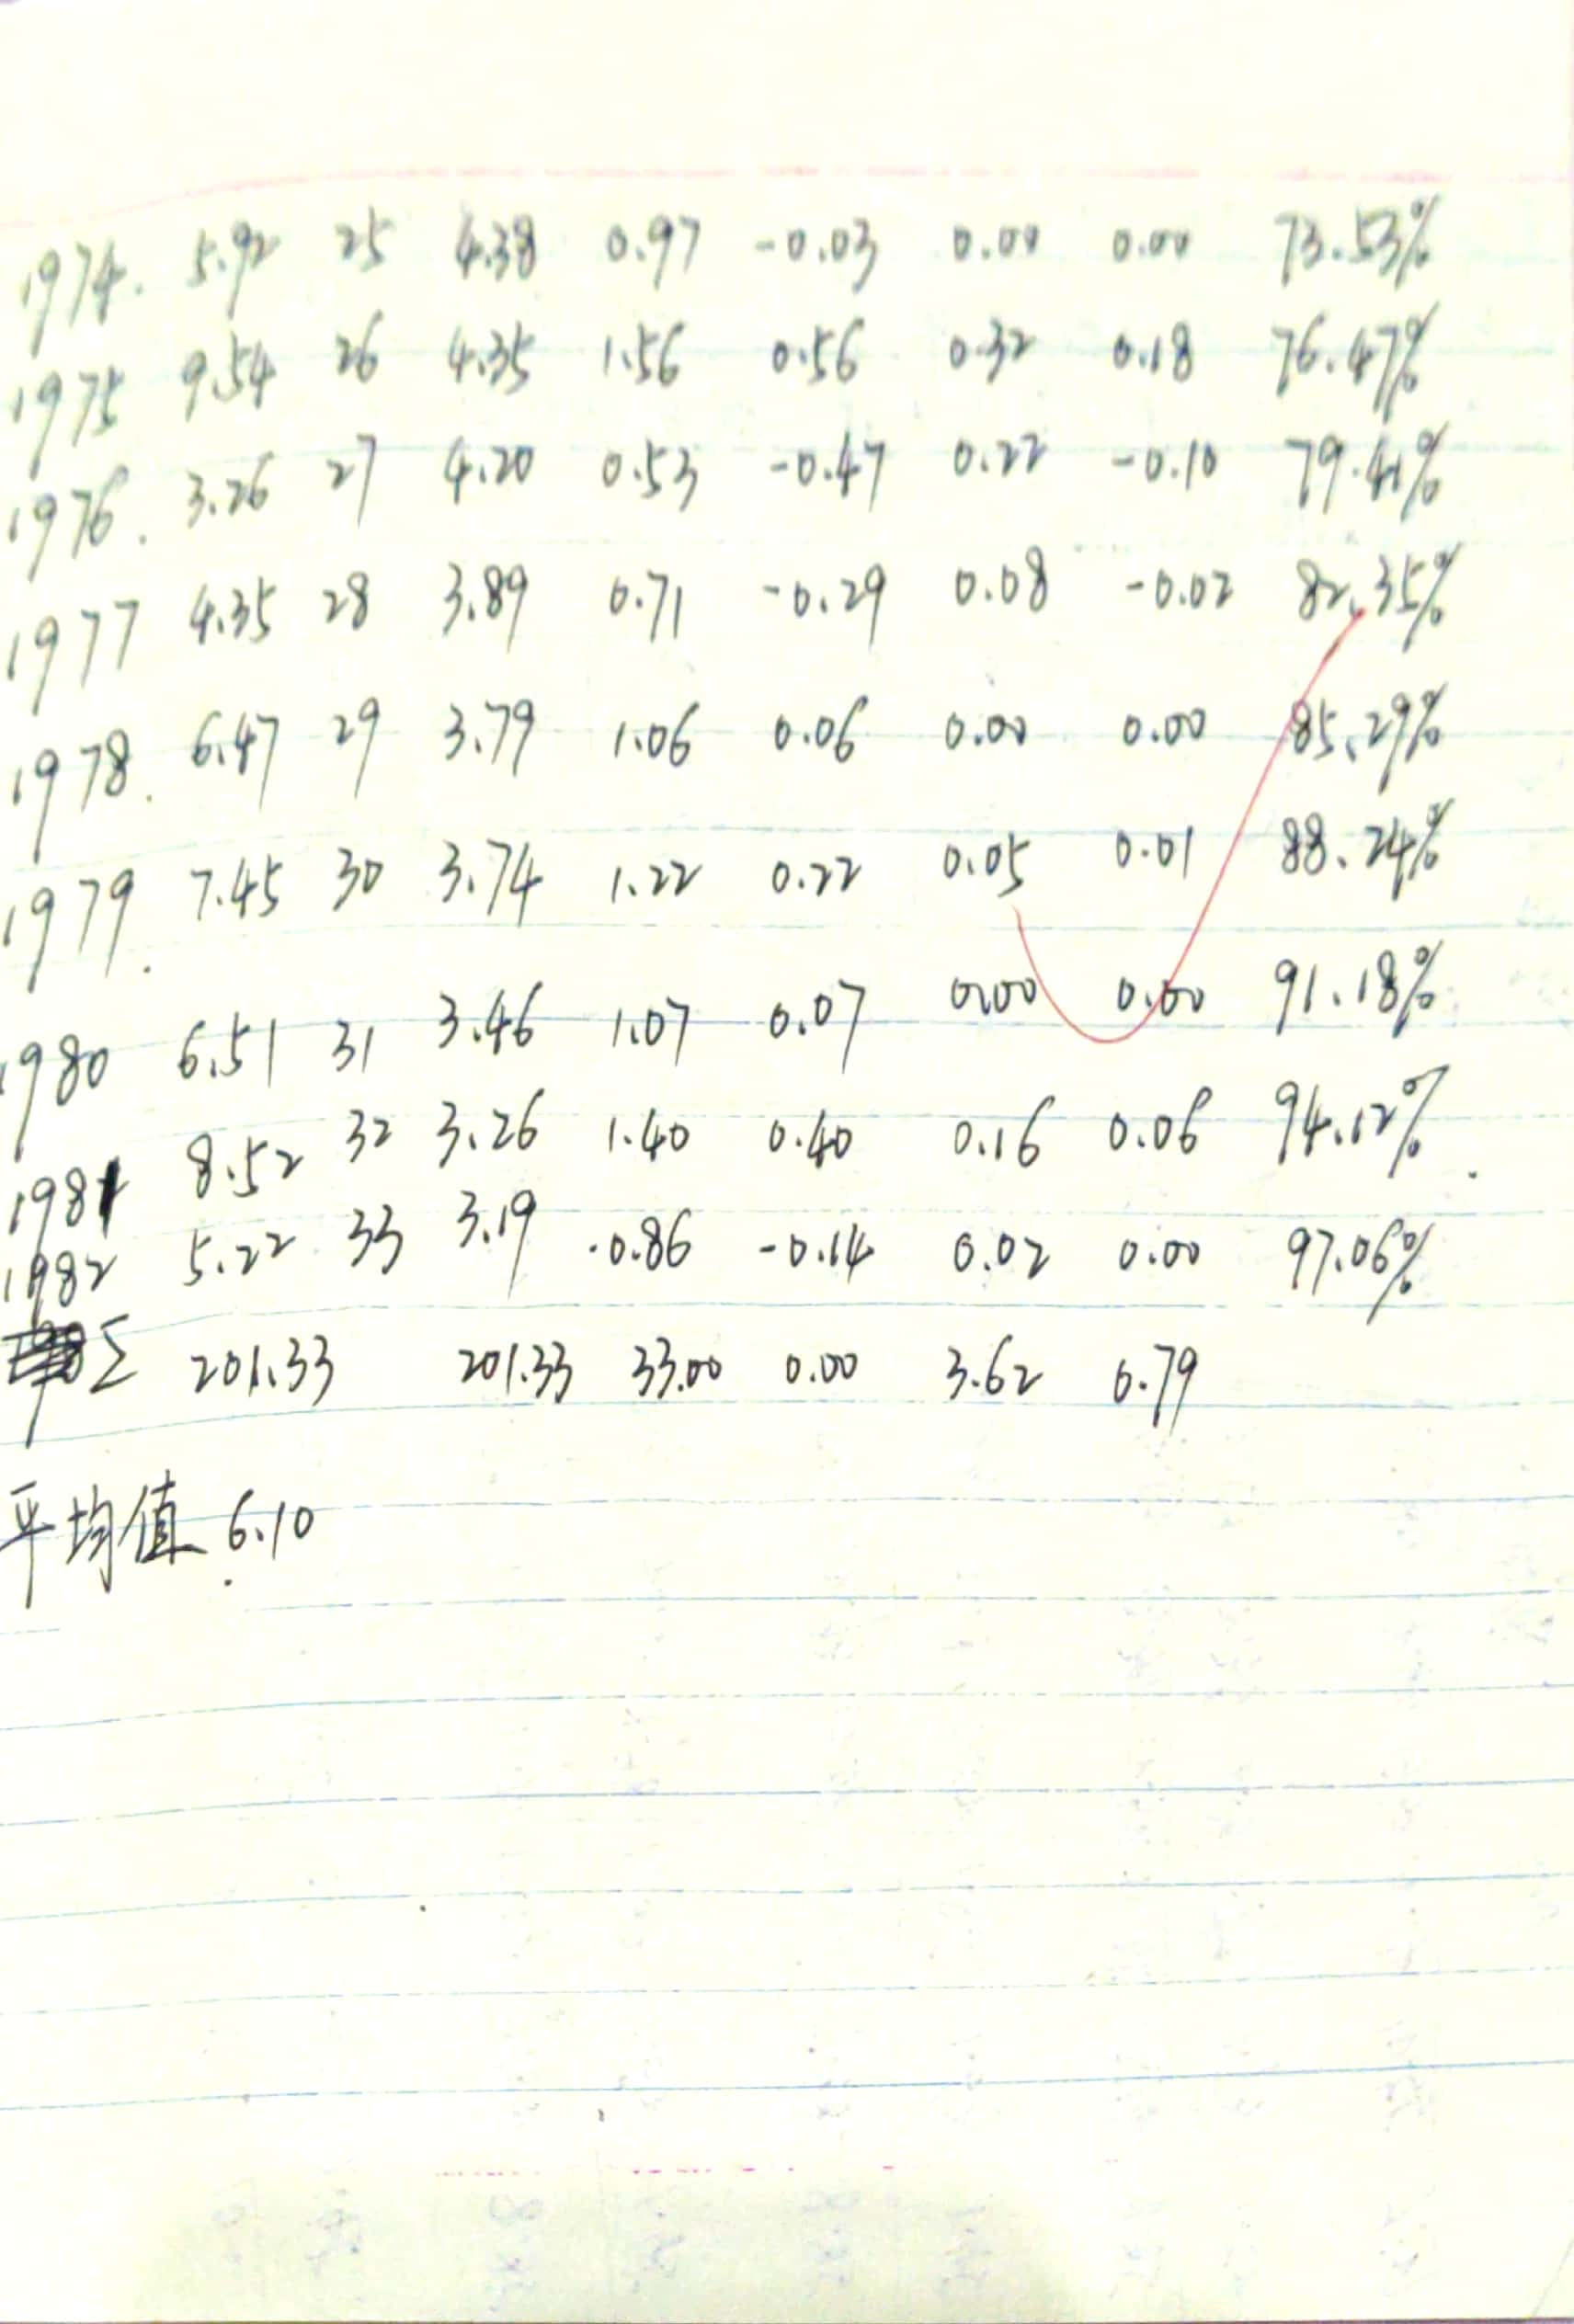 1974. 5.92 25 4.38 0.97 -0.03 0.00 0.00 73.53%
1975 9.54 26 4.35 1.56 0.56 0.32 0.18 76.47%
1976. 3.26 27 4.20 0.53 -0.47 0.22 -0.10 79.41%
1977 4.35 28 3.89 0.71 -0.29 0.08 -0.02 82.35%
1978. 6.47 29 3.79 1.06 0.06 0.00 0.00 85.29%
1979. 7.45 30 3.74 1.22 0.22 0.05 0.01 88.24%
1980 6.51 31 3.46 1.07 0.07 0.00 0.00 91.18%
1981 8.52 32 3.26 1.40 0.40 0.16 0.06 94.12%
1982 5.22 33 3.19 0.86 -0.14 0.02 0.00 97.06%
Σ 201.33 201.33 33.00 0.00 3.62 0.79
平均值 6.10